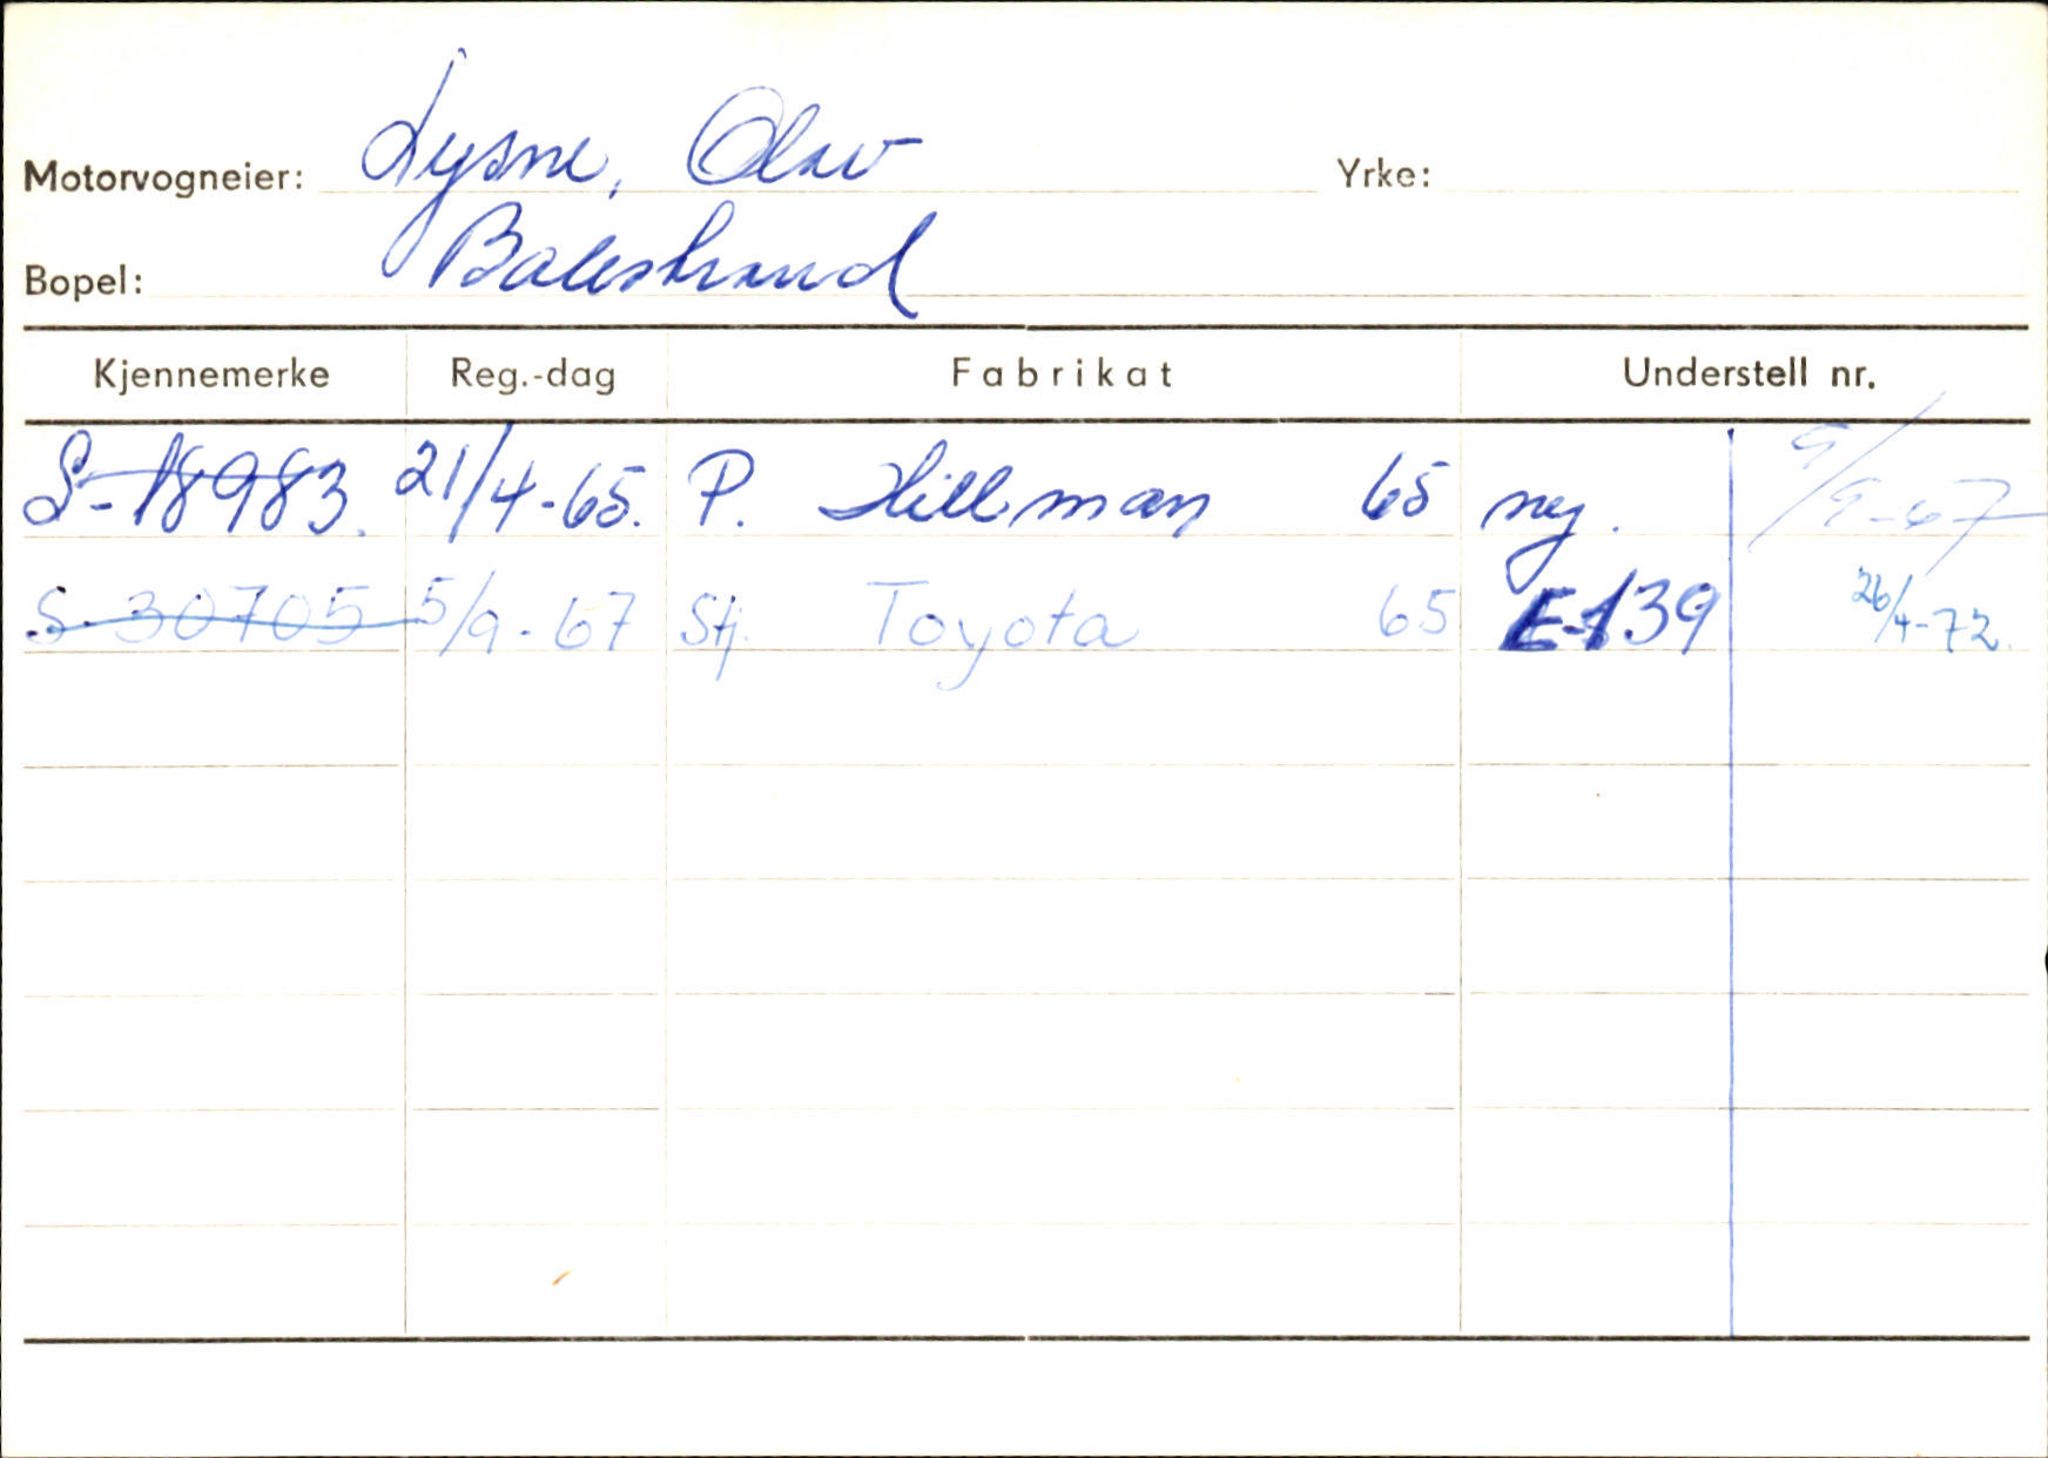 Motorvogneier: Lysne, Olav Yrke:
Bopel: Balestrand
Kjennemerke Reg.-dag Fabrikat Understell nr.
S-18983. 21/4-65. P. Hillman 65 ny. 9/9-67
S-30705 5/9-67 Stj. Toyota 65 E-139 26/4-72.